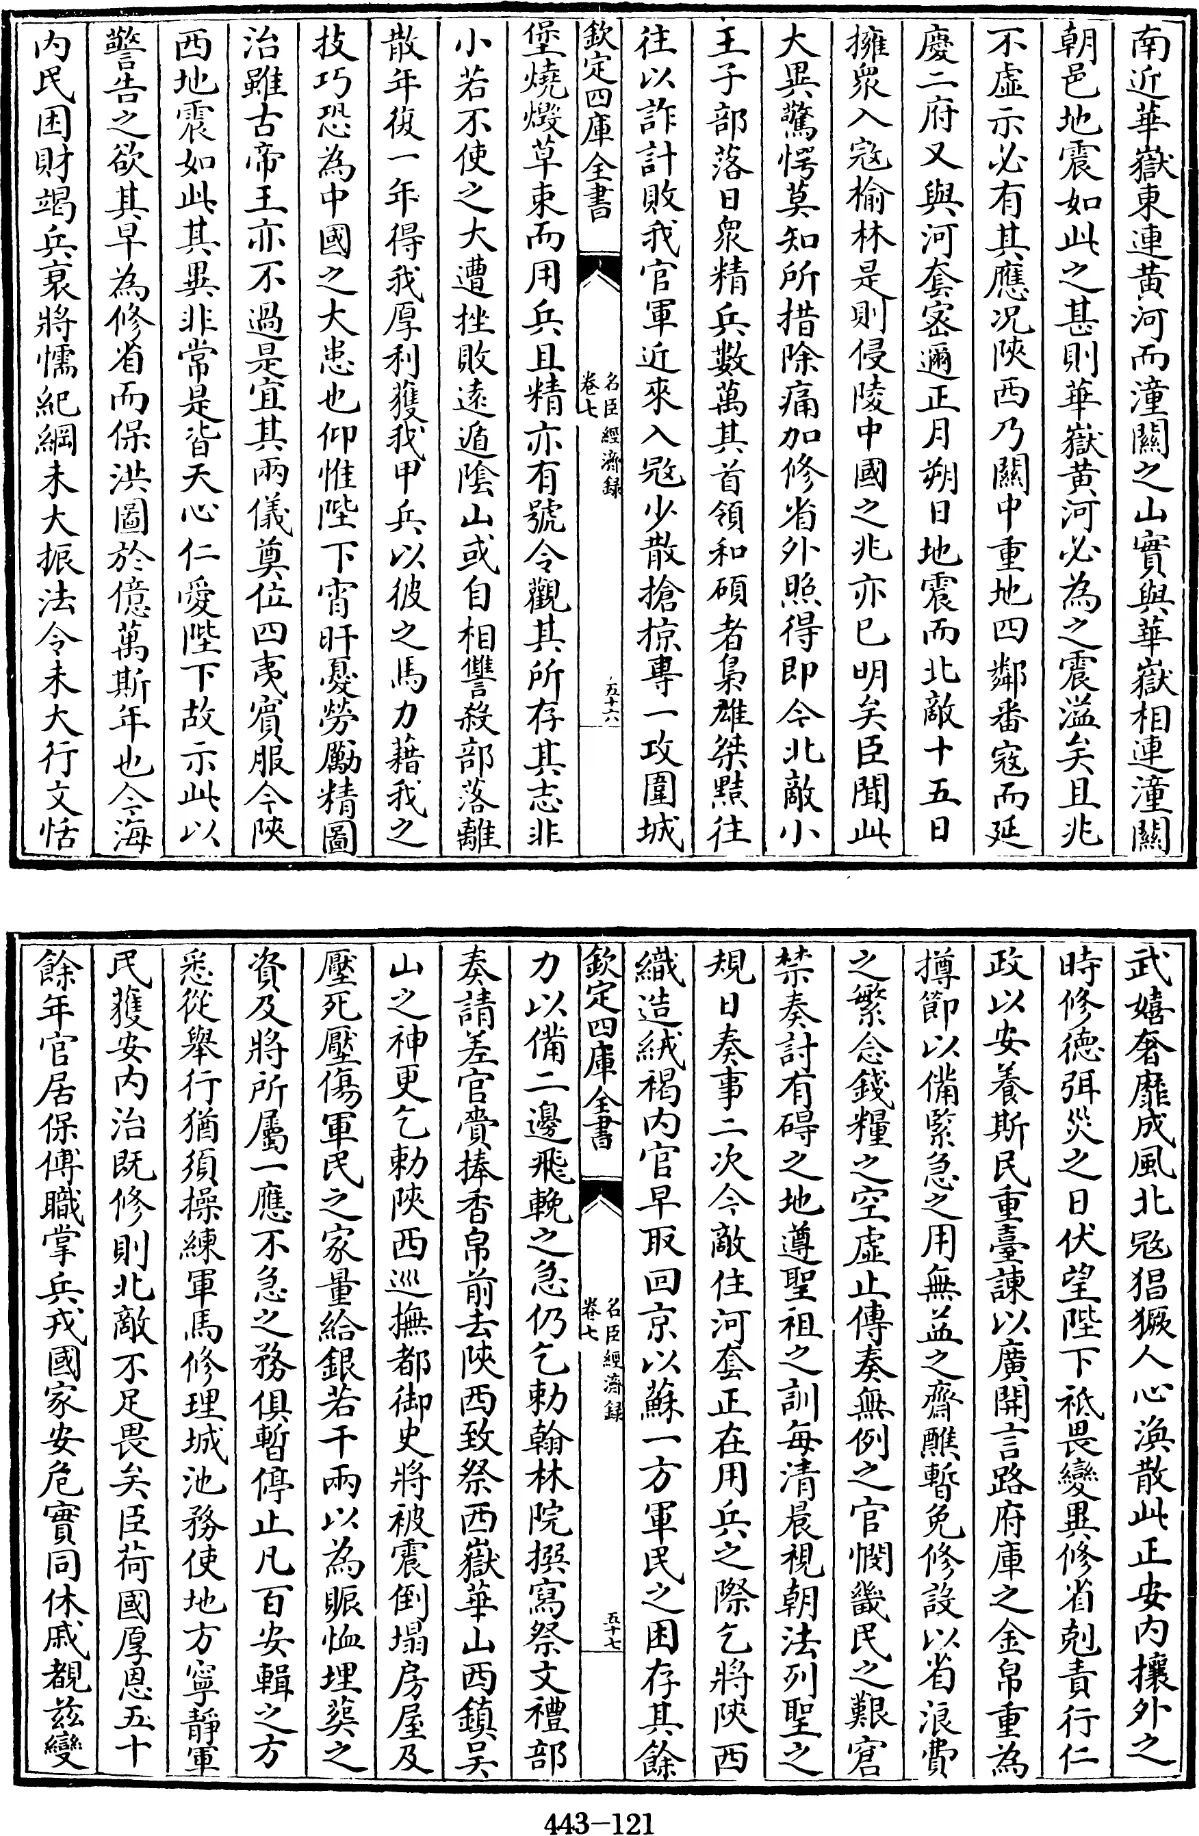 南近華嶽東連黄河而潼關之山實與華嶽相連潼關
朝邑地震如此之甚則華嶽黄河必為之震溢矣且兆
不虚示必有其應况陜西乃關中重地四鄰番寇而延
慶二府又與河套密邇正月朔日地震而北敵十五日
擁衆入寇榆林是則侵陵中國之兆亦已明矣臣聞此
大異驚愕莫知所措除痛加修省外照得即今北敵小
王子部落日衆精兵數萬其首領和碩者梟雄桀黠往
往以詐計敗我官軍近來入寇少散搶掠專一攻圍城
欽定四庫全書
名臣經濟録
卷七
五十六
堡燒燬草束而用兵且精亦有號令觀其所存其志非
小若不使之大遭挫敗遠遁陰山或自相讐殺部落離
散年復一年得我厚利獲我甲兵以彼之馬力藉我之
技巧恐為中國之大患也仰惟陛下宵旰憂勞勵精圖
治雖古帝王亦不過是宜其兩儀奠位四夷賓服今陜
西地震如此其異非常是皆天心仁愛陛下故示此以
警告之欲其早為修省而保洪圖於億萬斯年也今海
内民困財竭兵衰將懦紀綱未大振法令未大行文恬
武嬉奢靡成風北寇猖獗人心渙散此正安内攘外之
時修德弭災之日伏望陛下祗畏變異修省剋責行仁
政以安養斯民重臺諫以廣開言路府庫之金帛重為
撙節以備緊急之用無益之齋醮暫免修設以省浪費
之繁念錢糧之空虚止傳奏無例之官憫畿民之艱窘
禁奏討有碍之地遵聖祖之訓每清晨視朝法列聖之
規日奏事二次今敵住河套正在用兵之際乞將陜西
織造絨褐内官早取回京以蘇一方軍民之困存其餘
欽定四庫全書
名臣經濟録
卷七
五十七
力以備二邊飛輓之急仍乞勅翰林院撰寫祭文禮部
奏請差官賫捧香帛前去陜西致祭西嶽華山西鎮吴
山之神更乞勅陜西巡撫都御史將被震倒塌房屋及
壓死壓傷軍民之家量給銀若干兩以為賑恤埋葬之
資及將所屬一應不急之務俱暫停止凡百安輯之方
悉從舉行猶須操練軍馬修理城池務使地方寧靜軍
民獲安内治既修則北敵不足畏矣臣荷國厚恩五十
餘年官居保傅職掌兵戎國家安危實同休戚覩茲變
443-121